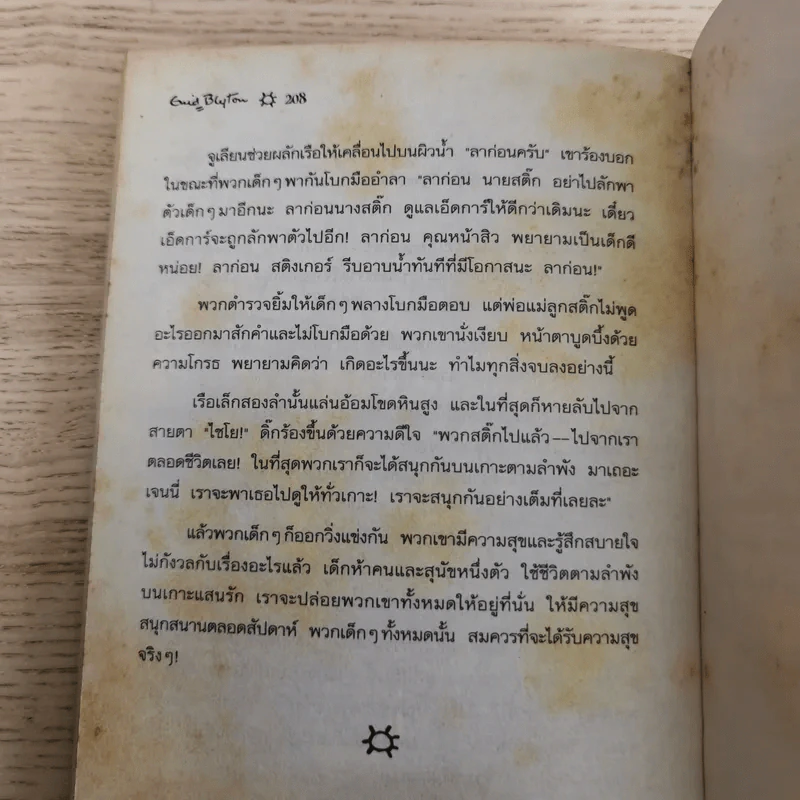 Enid Blyton 208
จูเลียนช่วยผลักเรือให้เคลื่อนไปบนผิวน้ำ "ลาก่อนครับ" เขาร้องบอก
ในขณะที่พวกเด็กๆ พากันโบกมืออำลา "ลาก่อน นายสติ๊ก อย่าไปลักพา
ตัวเด็กๆ มาอีกนะ ลาก่อนนางสติ๊ก ดูแลเอ็ดการ์ให้ดีกว่าเดิมนะ เดี๋ยว
เอ็ดการ์จะถูกลักพาตัวไปอีก! ลาก่อน คุณหน้าสิว พยายามเป็นเด็กดี
หน่อย! ลาก่อน สติงเกอร์ รีบอาบน้ำทันทีที่มีโอกาสนะ ลาก่อน!"
พวกตำรวจยิ้มให้เด็กๆ พลางโบกมือตอบ แต่พ่อแม่ลูกสติ๊กไม่พูด
อะไรออกมาสักคำและไม่โบกมือด้วย พวกเขานั่งเงียบ หน้าตาบูดบึ้งด้วย
ความโกรธ พยายามคิดว่า เกิดอะไรขึ้นนะ ทำไมทุกสิ่งจบลงอย่างนี้
เรือเล็กสองลำนั้นแล่นอ้อมโขดหินสูง และในที่สุดก็หายลับไปจาก
สายตา "ไชโย!" ดิ๊กร้องขึ้นด้วยความดีใจ "พวกสติ๊กไปแล้ว--ไปจากเรา
ตลอดชีวิตเลย! ในที่สุดพวกเราก็จะได้สนุกกันบนเกาะตามลำพัง มาเถอะ
เจนนี่ เราจะพาเธอไปดูให้ทั่วเกาะ! เราจะสนุกกันอย่างเต็มที่เลยละ"
แล้วพวกเด็กๆ ก็ออกวิ่งแข่งกัน พวกเขามีความสุขและรู้สึกสบายใจ
ไม่กังวลกับเรื่องอะไรแล้ว เด็กห้าคนและสุนัขหนึ่งตัว ใช้ชีวิตตามลำพัง
บนเกาะแสนรัก เราจะปล่อยพวกเขาทั้งหมดให้อยู่ที่นั่น ให้มีความสุข
สนุกสนานตลอดสัปดาห์ พวกเด็กๆ ทั้งหมดนั้น สมควรที่จะได้รับความสุข
จริงๆ!